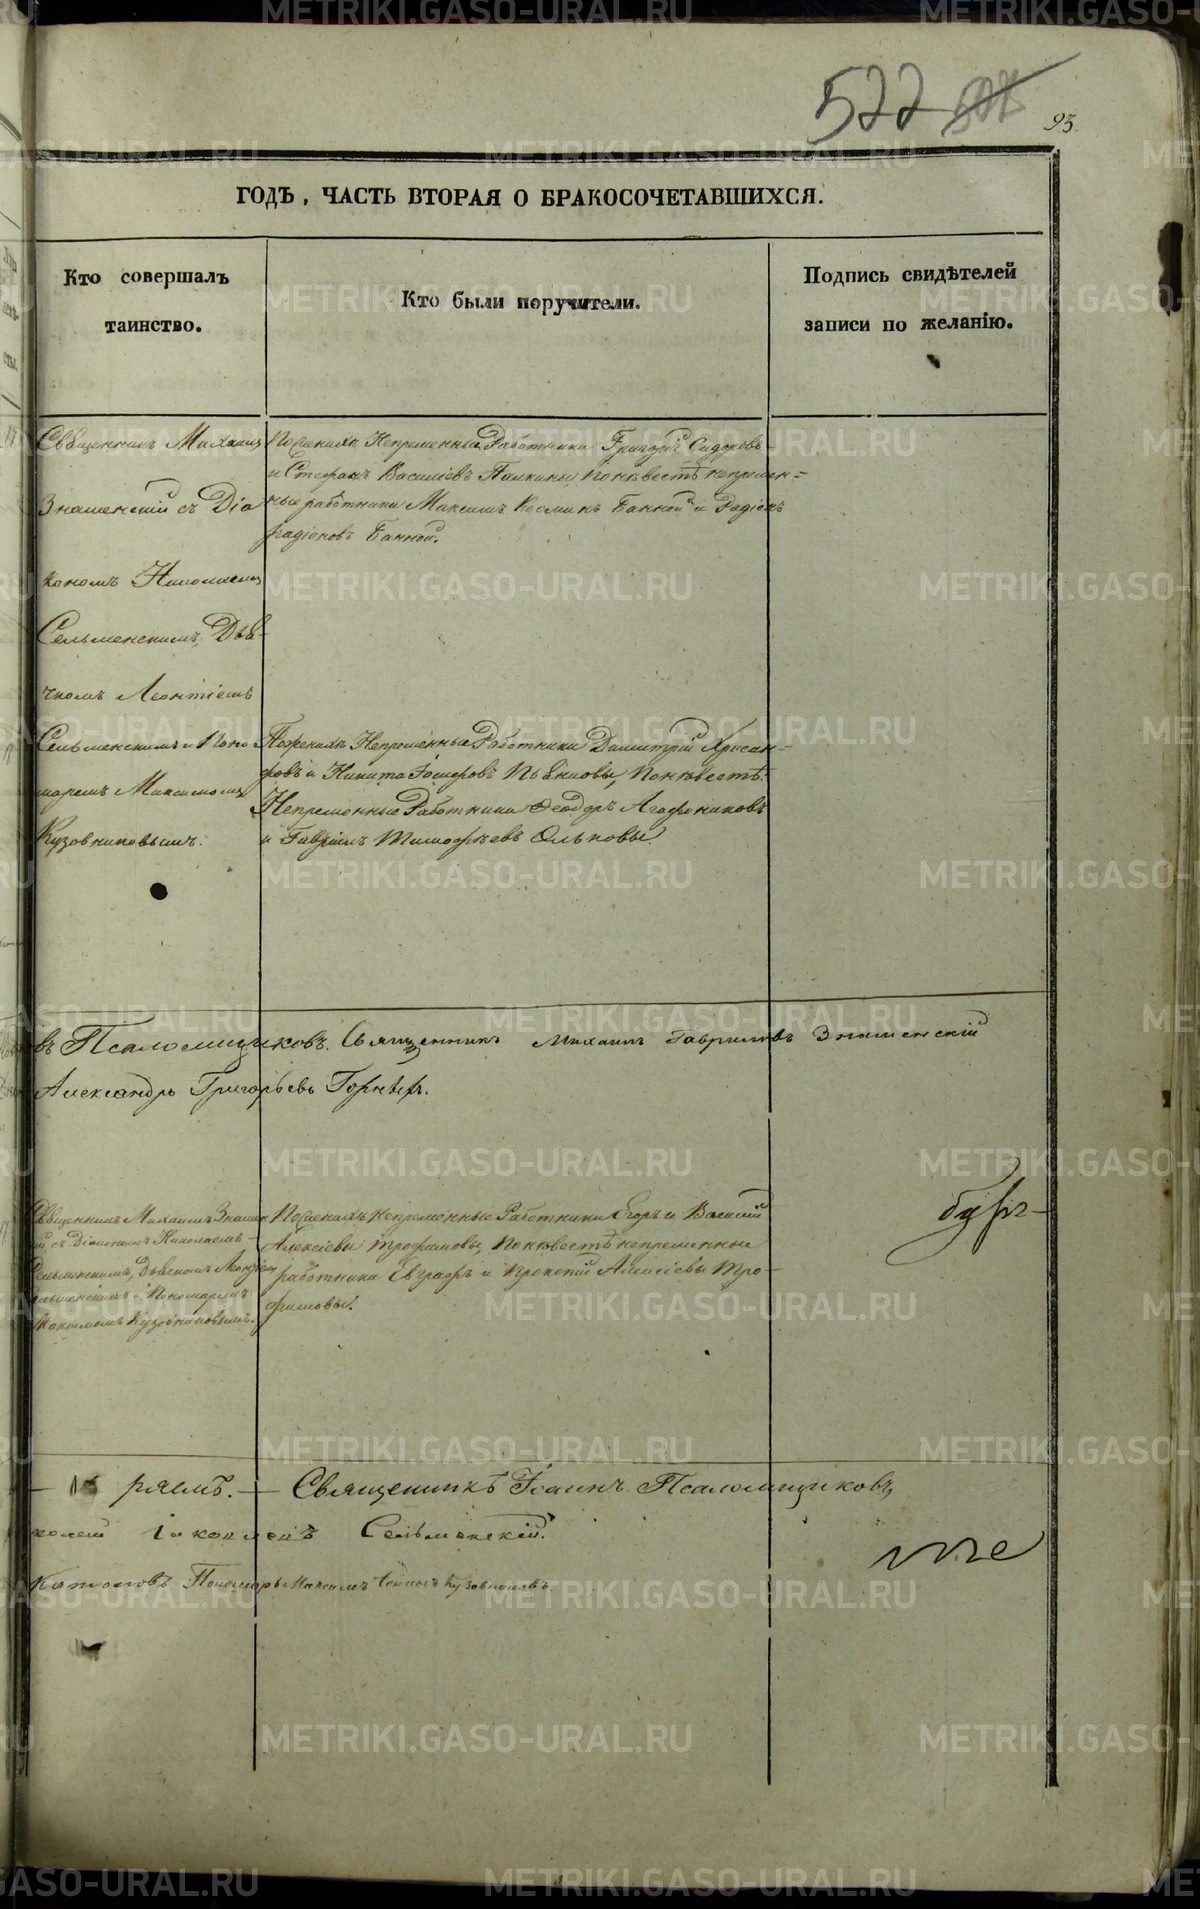 522
93.
ГОДЪ, ЧАСТЬ ВТОРАЯ О БРАКОСОЧЕТАВШИХСЯ.
Кто совершалъ
таинство.
Кто были поручители.
Подпись свидѣтелей
записи по желанію.
Священникъ Михаилъ
Знаменскій съ Діа
кономъ Николаемъ
Сельменскимъ, Дья-
чкомъ Леонтіемъ
Сельменскимъ и Поно
маремъ Максимомъ
Кузовниковымъ.
По женихѣ Непременные Работники Григорій Сидоровъ
и Стефанъ Василіевъ Палкины, по невестѣ непремен=
ные работники Максимъ Косминъ Банной и Радіонъ
Радіоновъ Банной.
По женихѣ Непременные Работники Димитрій Хрисан-
фовъ и Никита Пьянковы, По невестѣ
Непременные Работники Феодоръ Агафониковъ
и Гавріилъ Тимофѣевъ Ольковы.
въ Псаломщиковъ. Священникъ Михаилъ Гавриловъ Знаменскій
Александръ Григорьевъ
Священникъ Михаилъ Знамен
ій съ Діакономъ Николаемъ
Сельменскимъ, Дьячкомъ Леонтіем
Сельменскимъ и Пономаремъ
Максимомъ Кузовниковымъ.
По женихѣ Непременные Работники Егоръ и Василій
Алексіевы Трофимовы, По невестѣ непременные
работники Евграфъ и Прокопій Алексіевы Тро-
фимовы.
Священникъ Іоаннъ Псаломщиковъ,
Сельменскій.
Пономарь Максимъ Кузовниковъ
METRIKI.GASO-URAL.RU